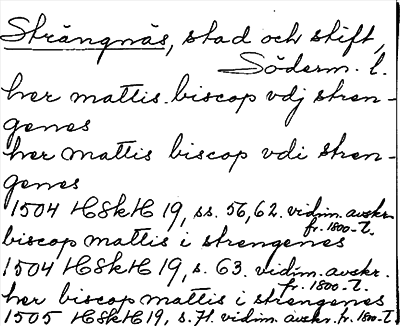 Strängnäs, stad och stift,
Söderm. l.
her mattis biscop vdj stren-
genes
her mattis biscop vdi stren-
genes
1504 HSkH 19, ss. 56, 62. vidim. avskr.
fr. 1800-t.
biscop mattis i strengenes
1504 HSkH 19, s. 63. vidim. avskr.
fr. 1800-t.
her biscop mattis i strengenes
1505 HSkH 19, s. 71. vidim. avskr. fr. 1800-t.